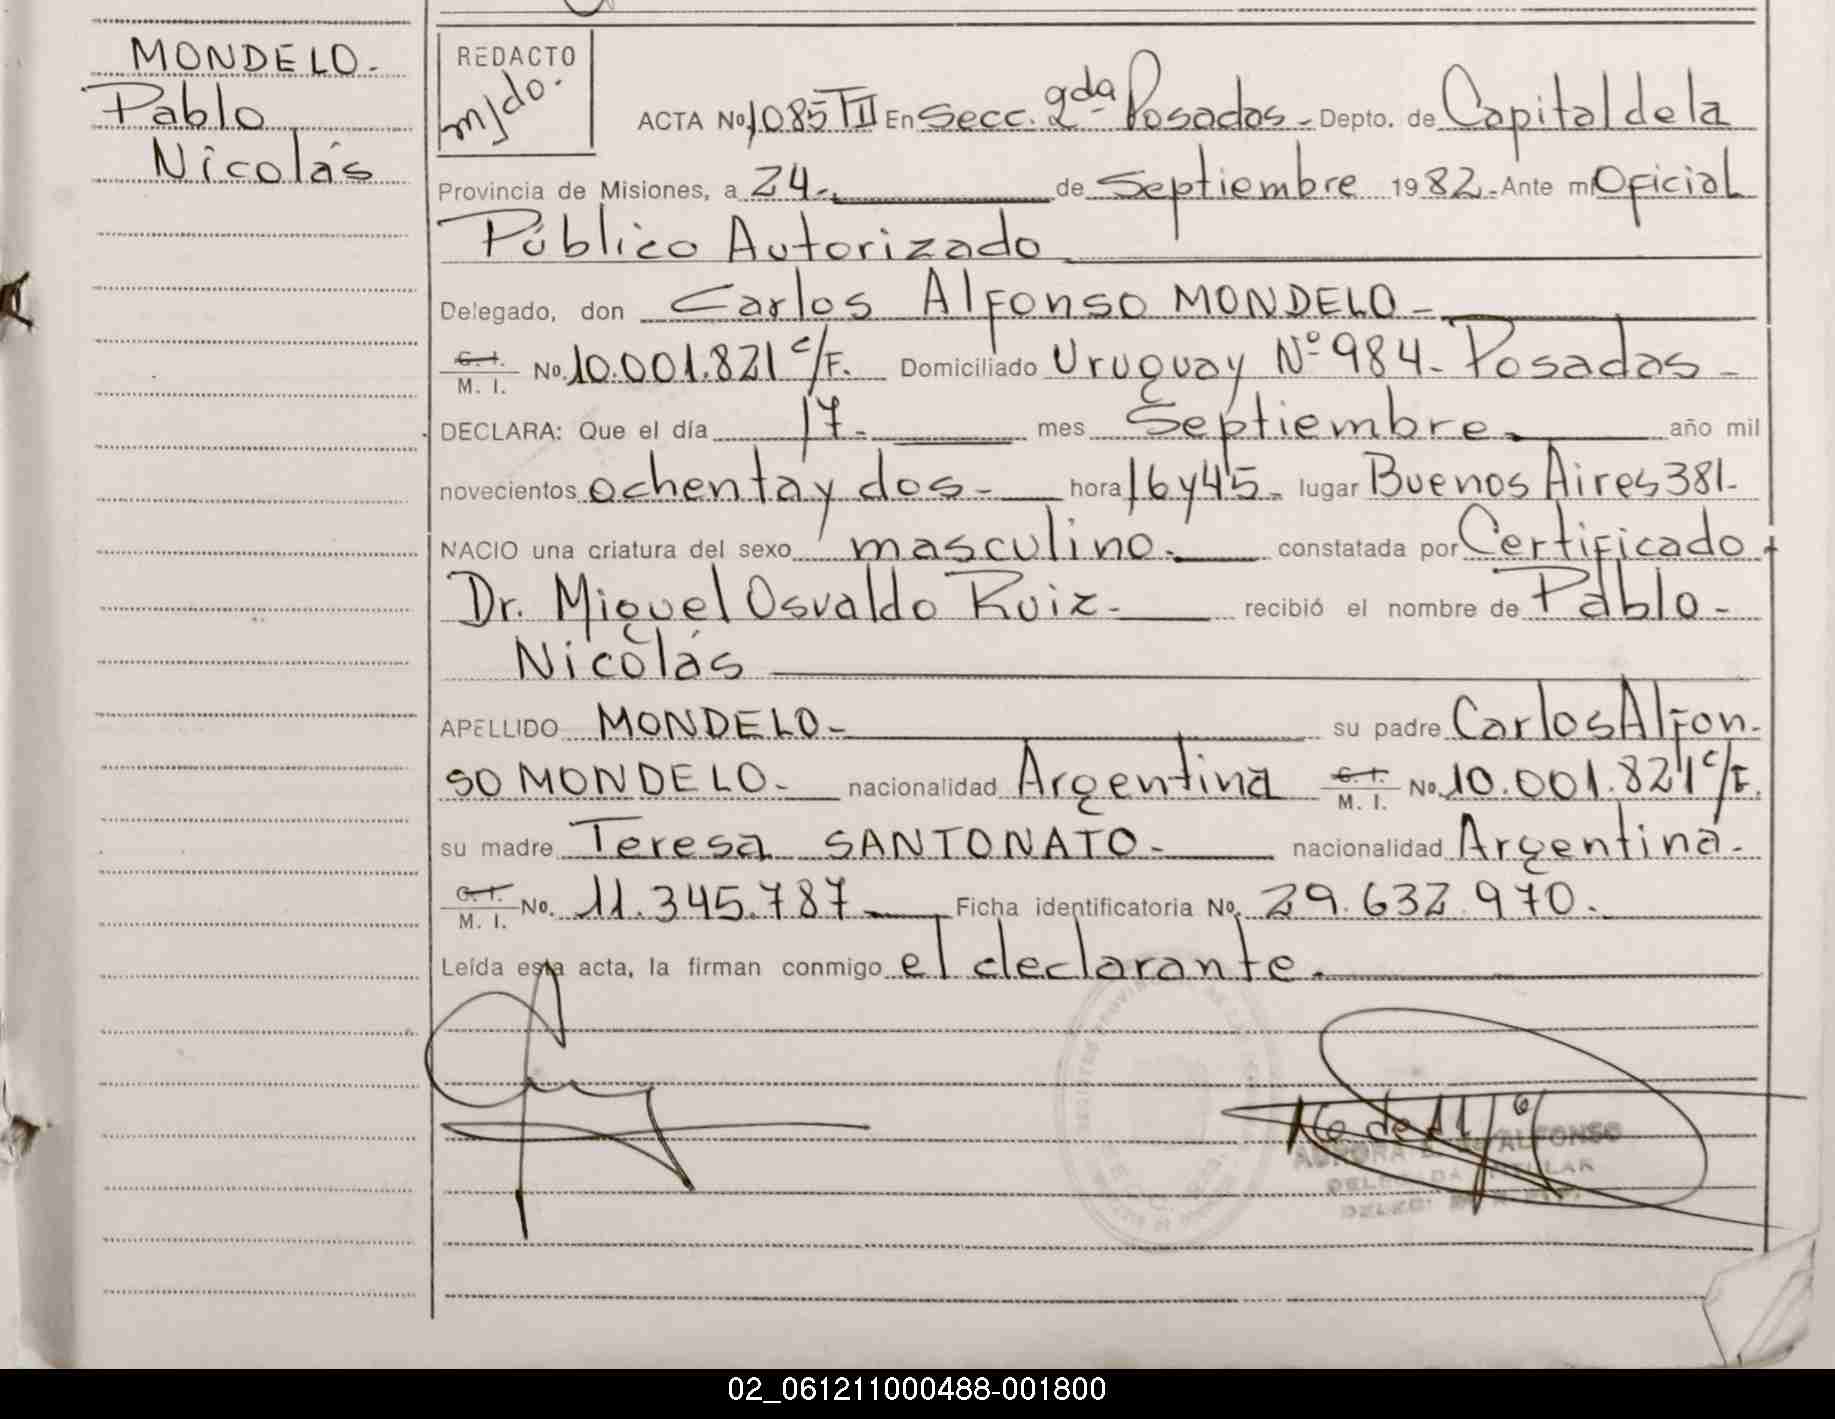 MONDELO.
Pablo
Nicolás
REDACTO
mjdo.
ACTA No. 1085 TII En Secc. 2da Posadas - Depto. de Capital de la
Provincia de Misiones, a 24. de Septiembre 1982.- Ante mi Oficial
Público Autorizado
Delegado, don Carlos Alfonso MONDELO -
C. I. M. I. No. 10.001.821 c/F. Domiciliado Uruguay Nº 984 - Posadas -
DECLARA: Que el día 17. mes Septiembre. año mil
novecientos ochenta y dos - hora 16 y 45 - lugar Buenos Aires 381.
NACIO una criatura del sexo masculino. constatada por Certificado
Dr. Miguel Osvaldo Ruiz - recibió el nombre de Pablo -
Nicolás
APELLIDO MONDELO - su padre Carlos Alfon-
so MONDELO - nacionalidad Argentina C. I. M. I. No. 10.001.821 c/F.
su madre Teresa SANTONATO - nacionalidad Argentina.
C. I. M. I. No. 11.345.787 Ficha identificatoria No. 29.632.970.
Leída esta acta, la firman conmigo el declarante.
ALFONSO
02_061211000488-001800